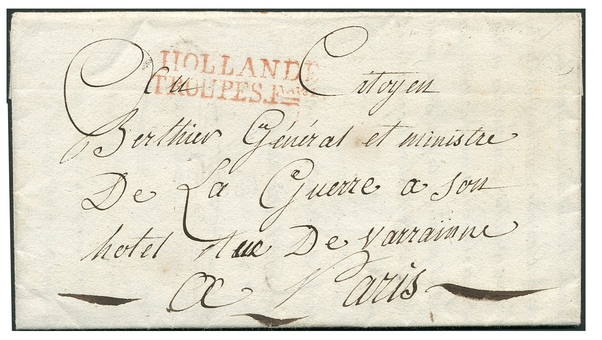 HOLLANDE
TROUPES.F.çaises
Au Citoyen
Berthier Général et ministre
De La Guerre a son
hotel Rue De Varrainne
a Paris